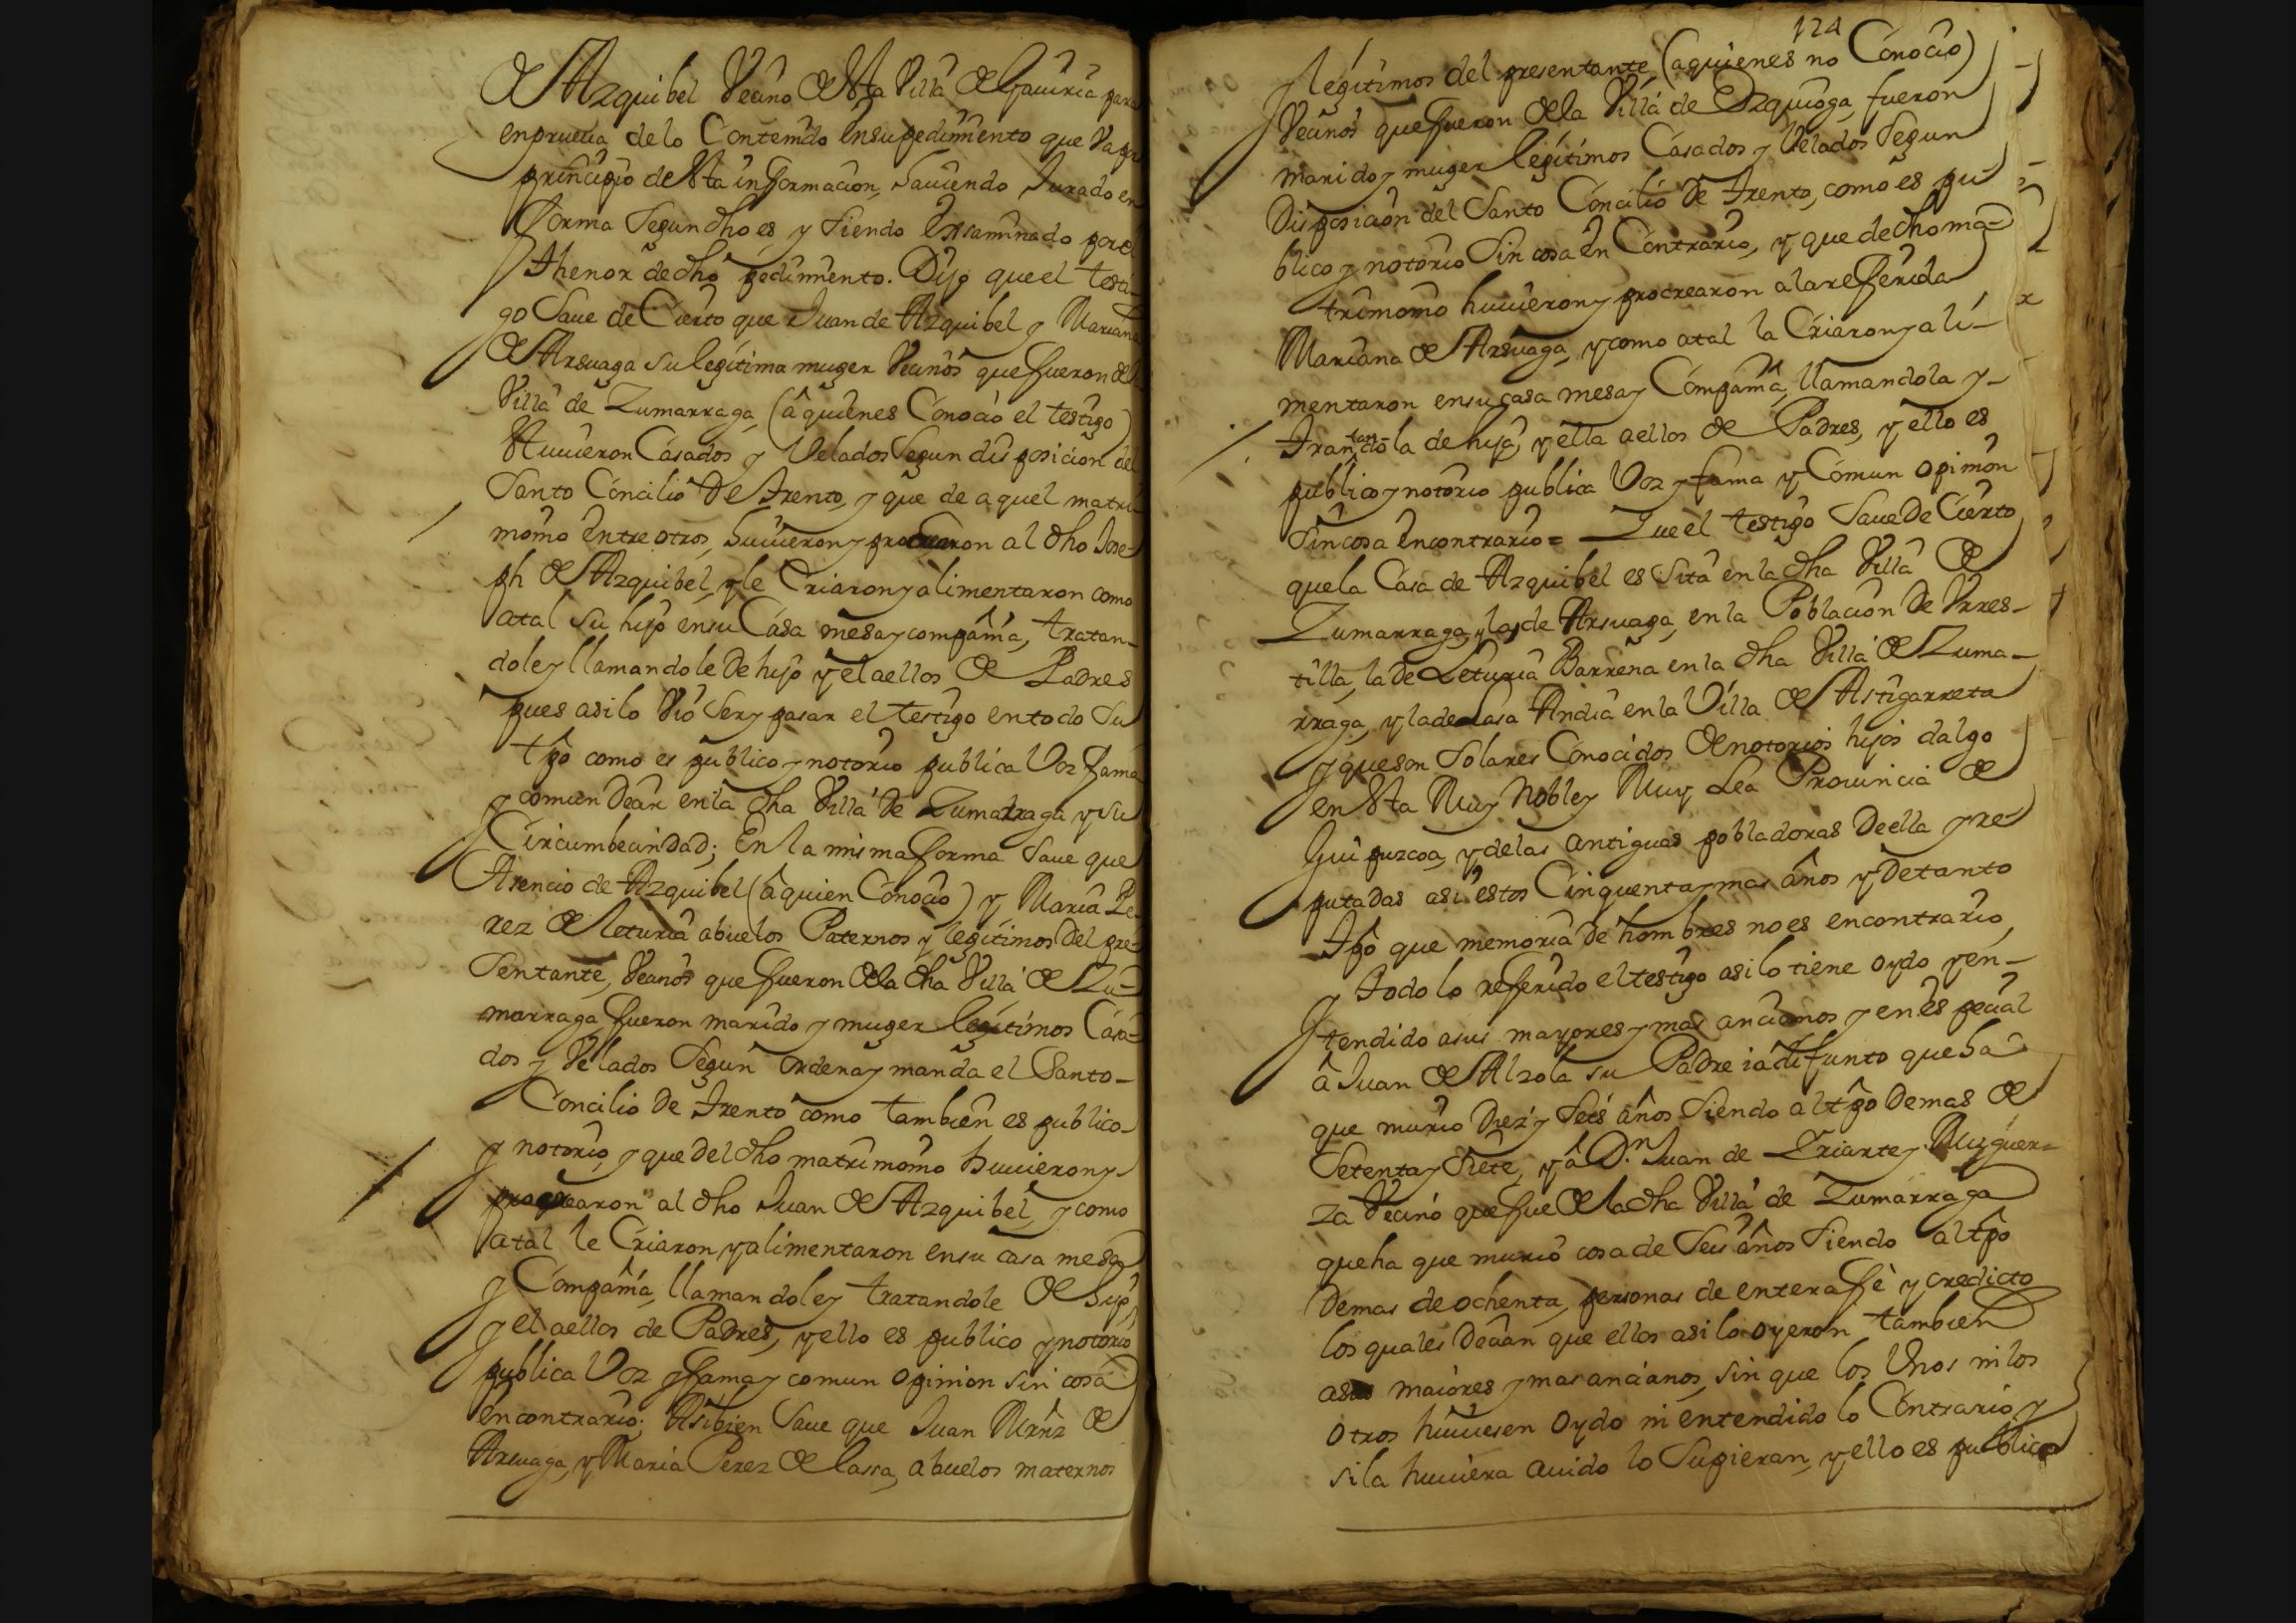 de Azquibel Vecino de esta Villa de Gaviria para
en prueva de lo Contenido en su pedimiento que va por
principio de esta informacion, haviendo Jurado en
forma segun dho es y siendo exsaminado por el
thenor de dho pedimiento. Dijo que el testi-
go save de Cierto que Juan de Azquibel y Mariana
de Arsuaga su legitima muger vecinos que fueron de la
Villa de Zumarraga, (â quienes Conocio el testigo)
estuvieron Casados y Velados segun disposicion del
Santo Concilio de Trento, y que de aquel matri
monio entre otros, huvieron y procrearon al dho Jose-
ph de Azquibel, y le Criaron y alimentaron como
atal su hijo en su Casa mesa y compañia, tratan-
dole y llamandole de hijo y el aellos de Padres
pues asi lo vió ser y pasar el testigo en todo su
tpô como es publico y notorio publica voz fama
y comun decir en la dha Villa de Zumarraga y su
Circumbecindad; En la misma forma save que
Asencio de Azquibel (â quien Conocio) y Maria Pe-
rez de leturia abuelos Paternos y legitimos del pre-
sentante, Vecinos que fueron de la dha Villa de Zu-
marraga fueron marido y muger legitimos Casa-
dos y Velados segun ordena y manda el Santo-
Concilio de Trento como tambien es publico-
y notorio, y que del dho matrimonio huvieron y-
procrearon al dho Juan de Azquibel, y como
atal le Criaron y alimentaron en su casa mesa
y Compañia, llamandole y tratandole de hijo,
y el aellos de Padres, y ello es publico y notorio
publica voz y fama y comun opinion sin cosa
en contrario: Asibien save que Juan Mrnz de
Arsuaga, y Maria Perez de lassa, abuelos maternos
124
legitimos del presentante, (aquienes no Conocio)
Vecinos que fueron de la Villa de Ezquioga, fueron
marido y muger legitimos Casados y Velados segun
Disposicion del Santo Concilio de Trento, como es pu-
blico y notorio sin cosa en Contrario, y que de dho ma-
trimonio huvieron y procrearon ala referida
Mariana de Arsuaga, y como atal la Criaron y ali-
mentaron en su casa mesa y Compañia, llamandola y-
tratandola de hija, y ella aellos de Padres, y ello es
publico y notorio publica voz y fama y Comun opinion
sin cosa en contrario= Que el testigo save de Cierto
que la Casa de Azquibel es sita en la dha Villa de
Zumarraga, y la de Arsuaga, en la Poblacion de Vrres-
tilla, la de Leturia Barrena en la dha Villa de Zuma-
rraga, y la de Lasa Andia en la Villa de Astigarreta
y que son Solares Conocidos de notorios hijos dalgo
en esta Muy Noble y Muy Lea Provincia de
Guipuzcoa, y de las antiguas pobladoras de ella y re-
putadas asi estos Cinquenta y mas años y de tanto
tpô que memoria de hombres no es encontrario,
y todo lo referido el testigo asi lo tiene oydo y en-
tendido a sus mayores y mas ancianos y en especial
â Juan de Alzola su Padre ia difunto que ha
que murio Diez y seis años siendo al tpô de mas de
setenta y siete, y â D.n Juan de Yriarte y Muguer-
za Vecino que fue de la dha Villa de Zumarraga
que ha que murio cosa de seis años siendo al tpô
de mas de ochenta, personas de entera fè y credicto
los quales decian que ellos asi lo oyeron tambien
a sus maiores y mas ancianos, sin que los Vnos ni los
otros huviesen oydo ni entendido lo Contrario, y
si la huviera avido lo supieran, y ello es publico